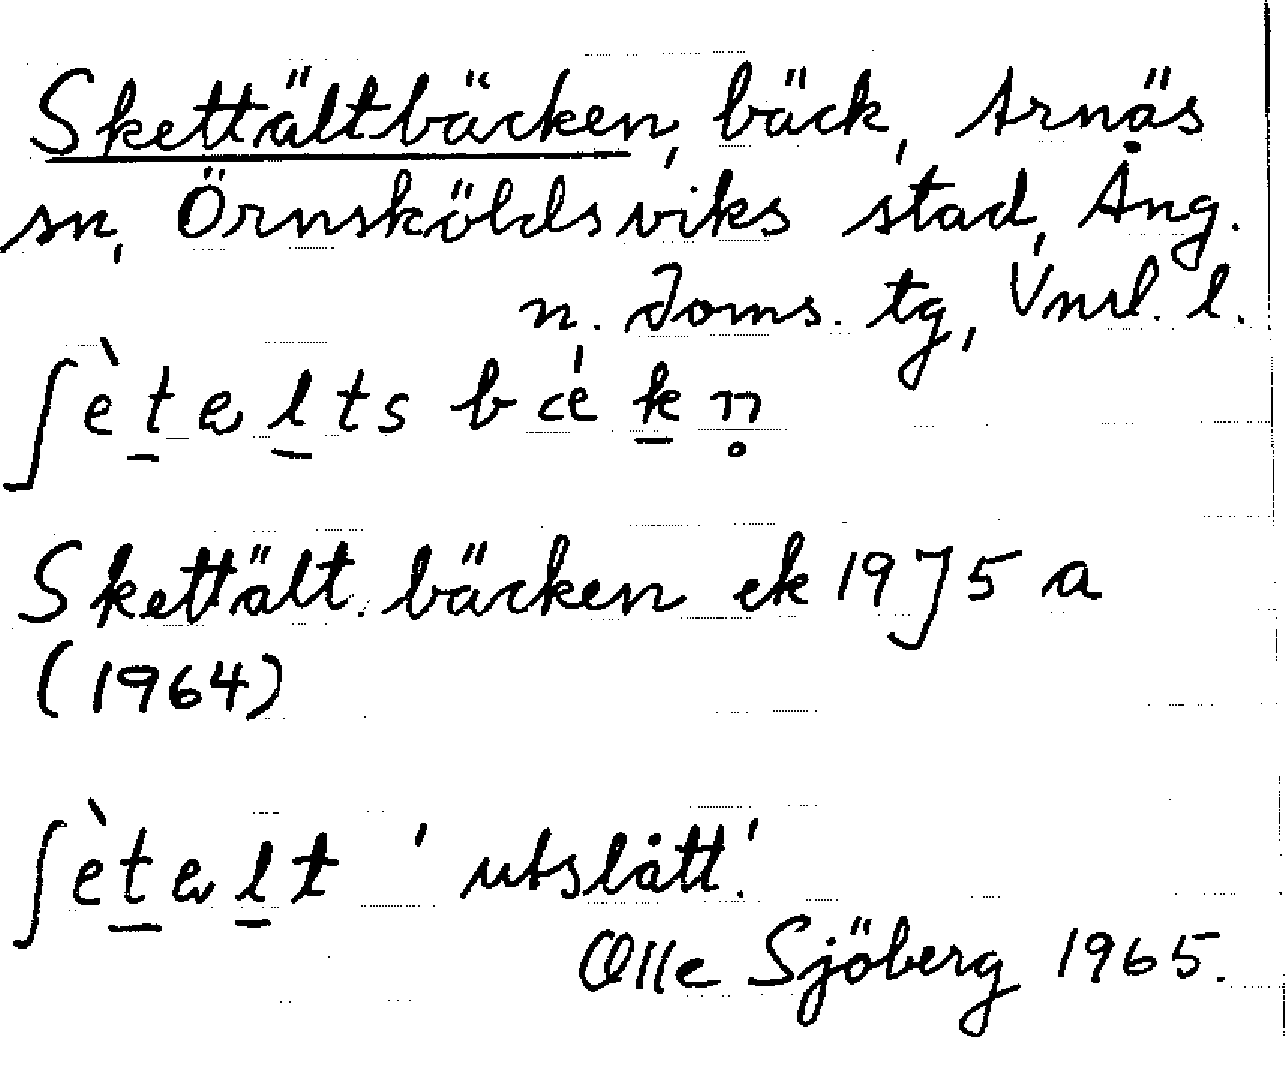 Skettältbäcken, bäck, Arnäs
sn, Örnsköldsviks stad, Ång.
n. Joms. tg, Vnrl. l.
ʃèta̲l̲ts bæ̀k̲n̥
Skettält.bäcken ek 19J5 a
(1964)
ʃèt̲al̲t 'utslått'.
Olle Sjöberg 1965.